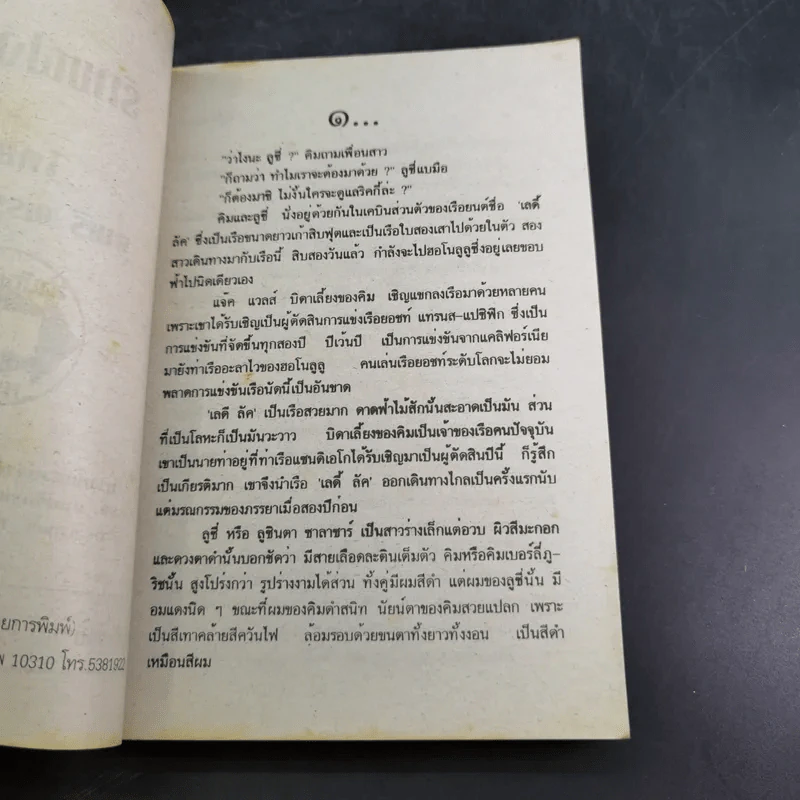 ๑...
"ว่าไงนะ ลูซี่ ?" คิมถามเพื่อนสาว
"ก็ถามว่า ทำไมเราจะต้องมาด้วย ?" ลูซี่แบมือ
"ก็ต้องมาซิ ไม่งั้นใครจะดูแลริคกี้ล่ะ ?"
คิมและลูซี่ นั่งอยู่ด้วยกันในเคบินส่วนตัวของเรือยนต์ชื่อ 'เลดี้
ลัค' ซึ่งเป็นเรือขนาดยาวเก้าสิบฟุตและเป็นเรือใบสองเสาไปด้วยในตัว สอง
สาวเดินทางมากับเรือนี้ สิบสองวันแล้ว กำลังจะไปฮอโนลูลูซึ่งอยู่เลยขอบ
ฟ้าไปนิดเดียวเอง
แจ๊ค แวลส์ บิดาเลี้ยงของคิม เชิญแขกลงเรือมาด้วยหลายคน
เพราะเขาได้รับเชิญเป็นผู้ตัดสินการแข่งเรือยอชท์ แทรนส-แปซิฟิก ซึ่งเป็น
การแข่งขันที่จัดขึ้นทุกสองปี ปีเว้นปี เป็นการแข่งขันจากแคลิฟอร์เนีย
มายังท่าเรืออะลาไวของฮอโนลูลู คนเล่นเรือยอชท์ระดับโลกจะไม่ยอม
พลาดการแข่งขันเรือนัดนี้เป็นอันขาด
'เลดี้ ลัค' เป็นเรือสวยมาก ดาดฟ้าไม้สักนั้นสะอาดเป็นมัน ส่วน
ที่เป็นโลหะก็เป็นมันวะวาว บิดาเลี้ยงของคิมเป็นเจ้าของเรือคนปัจจุบัน
เขาเป็นนายท่าอยู่ที่ท่าเรือแซนดิเอโกได้รับเชิญมาเป็นผู้ตัดสินปีนี้ ก็รู้สึก
เป็นเกียรติมาก เขาจึงนำเรือ 'เลดี้ ลัค' ออกเดินทางไกลเป็นครั้งแรกนับ
แต่มรณกรรมของภรรยาเมื่อสองปีก่อน
ลูซี่ หรือ ลูซินดา ซาลาซาร์ เป็นสาวร่างเล็กแต่อวบ ผิวสีมะกอก
และดวงตาดำนั้นบอกชัดว่า มีสายเลือดละตินเต็มตัว คิมหรือคิมเบอร์ลี่ภู-
ริชนั้น สูงโปร่งกว่า รูปร่างงามได้ส่วน ทั้งคู่มีผมสีดำ แต่ผมของลูซี่นั้น มี
อมแดงนิด ๆ ขณะที่ผมของคิมดำสนิท นัยน์ตาของคิมสวยแปลก เพราะ
เป็นสีเทาคล้ายสีควันไฟ ล้อมรอบด้วยขนตาทั้งยาวทั้งงอน เป็นสีดำ
เหมือนสีผม
ยการพิมพ์)
10310 โทร.5381922